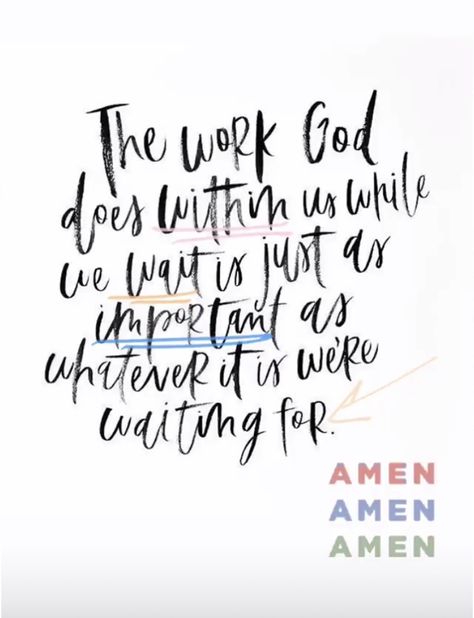 The work God
does within us while
we wait is just as
important as
whatever it is we're
waiting for.
AMEN
AMEN
AMEN